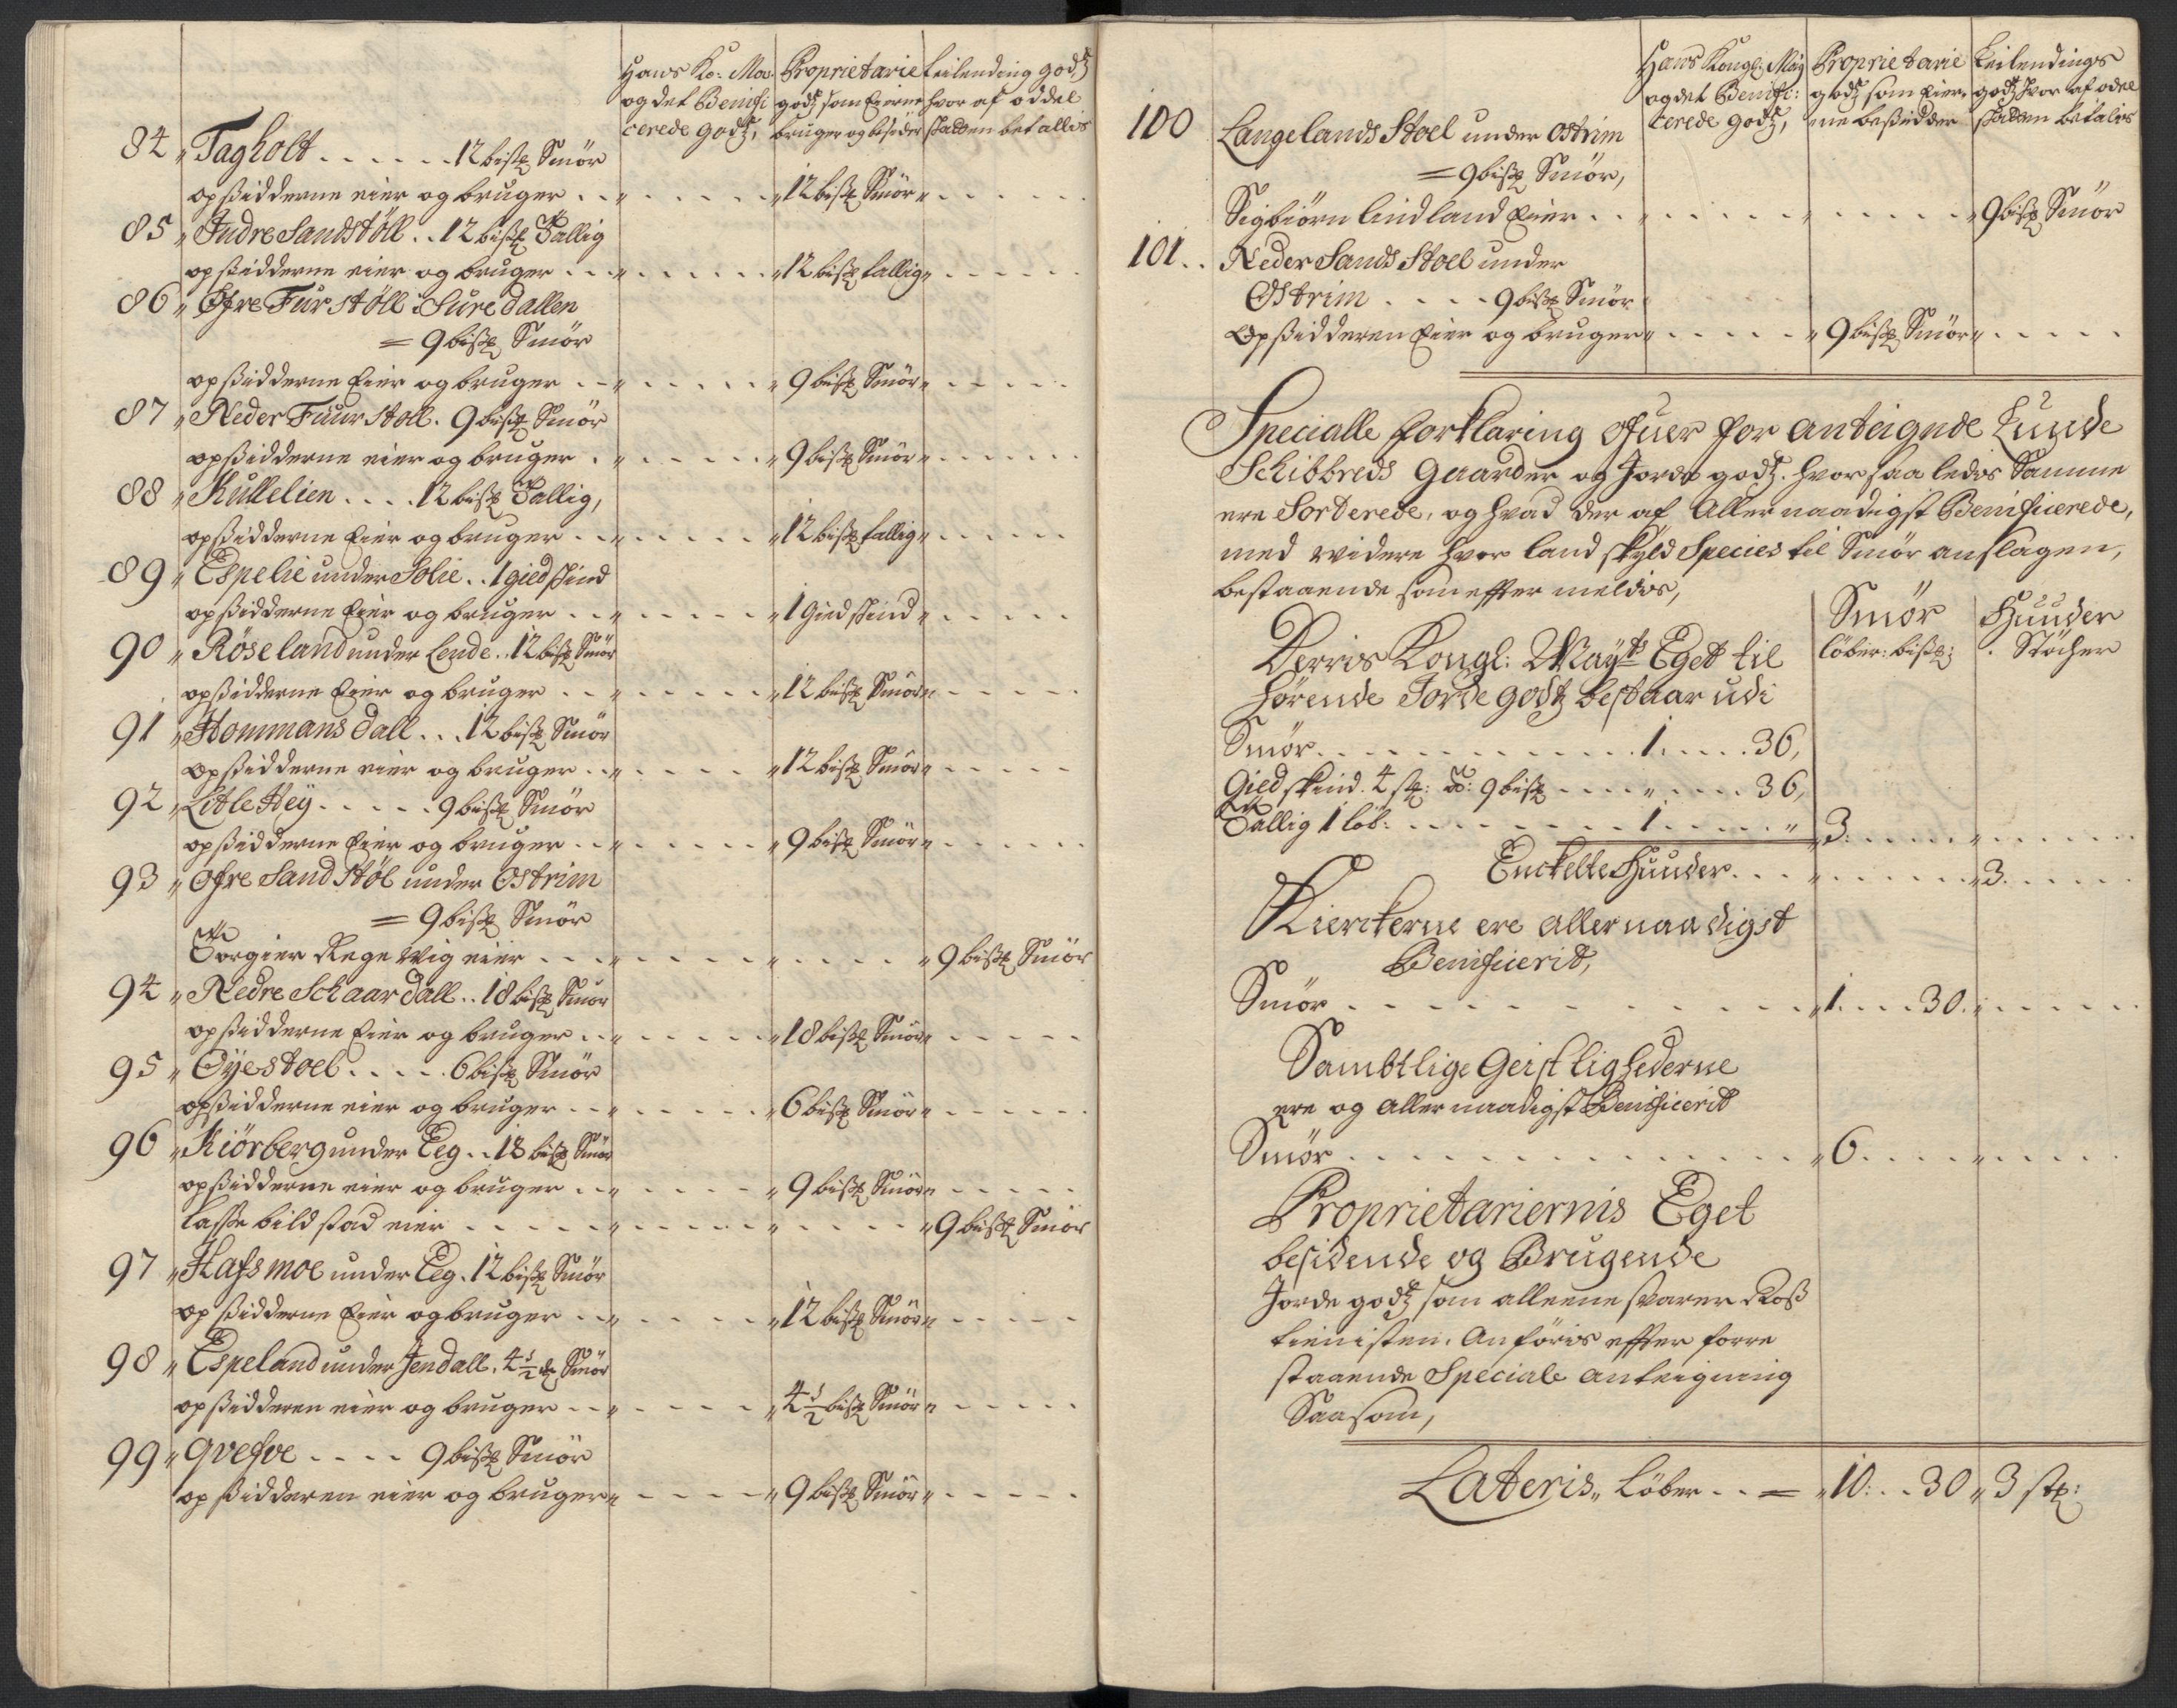 Hans Ko: May: Proprietarie Leilending godz
og det Benifi godz som Eierne hvor af oddel
cerede godz, bruger og besider skatten betallis
84 „ Tagholt . . . . . . 12 bissp Smör
opsidderne eier og bruger . . „ . . . . . „ 12 bissp Smör „ . . . . .
85 „ Indre Sandstöll . . 12 bissp Tallig
opsidderne eier og bruger . . . „ . . . . . „ 12 bissp tallig „ . . . . .
86 „ Öfre Fürstöll i Suredallen
= 9 bissp Smör
opsidderne Eier og bruger . . „ . . . . . „ 9 bissp Smör „ . . . . .
87 „ Neder Fuurstoll . 9 bissp Smör
opsidderne eier og bruger . „ . . . . . „ 9 bissp Smör „ . . . . .
88 „ Kullelien . . . . 12 bissp Tallig,
opsidderne Eier og bruger . . „ . . . . . „ 12 bissp tallig „ . . . . .
89 „ Espelie under Solie . . 1 gied skind
opsidderne Eier og bruger . . „ . . . . . „ 1 Gied skind „ . . . . .
90 „ Röseland under Lende . . 12 bissp Smör
opsidderne Eier og bruger . . „ . . . . . „ 12 bissp Smör „ . . . . .
91 „ Hommansdall . . . 12 bissp Smör
opsidderne eier og bruger . . „ . . . . „ 12 bissp Smör „ . . . . .
92 „ Litle Hey . . . . . 9 bissp Smör
opsidderne Eier og bruger . . „ . . . . . „ 9 bissp Smör „ . . . . .
93 „ Ofre Sandstöl under Ostrim
= 9 bissp Smör
Torgier Rege wig eier . . . „ . . . . . „ . . . . . „ 9 bissp Smör
94 „ Nedre Schaardall . . 18 bissp Smör
opsidderne Eier og bruger . . „ . . . . . „ 18 bissp Smör „ . . . . .
95 „ Öyestoel . . . . . 6 bissp Smör
opsidderne eier og bruger . . „ . . . . . „ 6 bissp Smör „ . . . . .
96 „ Kiörberg under Eeg . . 18 bissp Smör
opsidderne eier og bruger . . „ . . . . „ 9 bissp Smör „ . . . . .
Lasse bildstad eier . . . . . „ . . . . . „ . . . . . „ 9 bissp Smör
97 „ Hafsmoe under Eeg . 12 bissp Smör
opsidderne Eier og bruger . . „ . . . . „ 12 bissp Smör „ . . . . .
98 „ Espeland under Jendall . 4 1/2 do Smör
opsidderen eier og bruger . . „ . . . . „ 4 1/2 bissp Smör „ . . . . .
99 „ Qvesve . . . . 9 bissp Smör
opsidderen eier og bruger „ . . . . „ 9 bissp Smör „ . . . . .
Hans Kongl. May Proprietarie Leilendings
og det Benifi: godz som Eier godz hvor af odel
cerede godz, ne besidder skatten betalis
100 Langelands Stoel under Ostrim
= 9 bissp Smör,
Sigbiörn Lindland Eier . . „ . . . . . „ . . . . . „ 9 bissp Smör
101 . . Neder Sands Stoel under
Ostrim . . . . 9 bissp Smör
Opsidderen Eier og bruger „ . . . . . „ 9 bissp Smör „ . . . . .
Specialle forklaring ofuer for anteignde Lunde
Schibbreds gaarder og Jorde godz. hvorsaaledes Samme
ere Sorterede, og hvad der af Allernaadigst Benificerede,
med widere hvor landskyld Species til Smör anslagen,
bestaaende som effter meldes,
Smör Huuder
löber: bissp: . Stöcher
Derris Kongl: Mayts Eget til
hörende Jorde godz bestaar udi
Smör . . . . . . . . . . . . 1 . . . . . 36,
Gied skind 4 st: à: 9 bissp . . . . „ . . . . 36,
Tallig 1 löb: . . . . . . . . 1 . . . . . „ „ 3: . . . . . „ . . . . .
Enckelte Huuder . . . „ . . . . . „ 3 . . . . .
Kierckerne ere allernaadigst
Benificerit,
Smör . . . . . . . . . . . . „ 1 . . . . 30 . „ . . . . .
Sambtlige Geistlighederne
ere og allernaadigst Benificerit
Smör . . . . . . . . . . . . „ 6 . . . . . „ . . . . .
Proprietariernis Eget
besidende og Brugende
Jorde godz som alleene svarer Ross
tienisten. Anföris effter forre
staaende Speciale anteigning
Saasom,
Lateris „ Löber . . = „ 10: . . 30 „ 3 st: